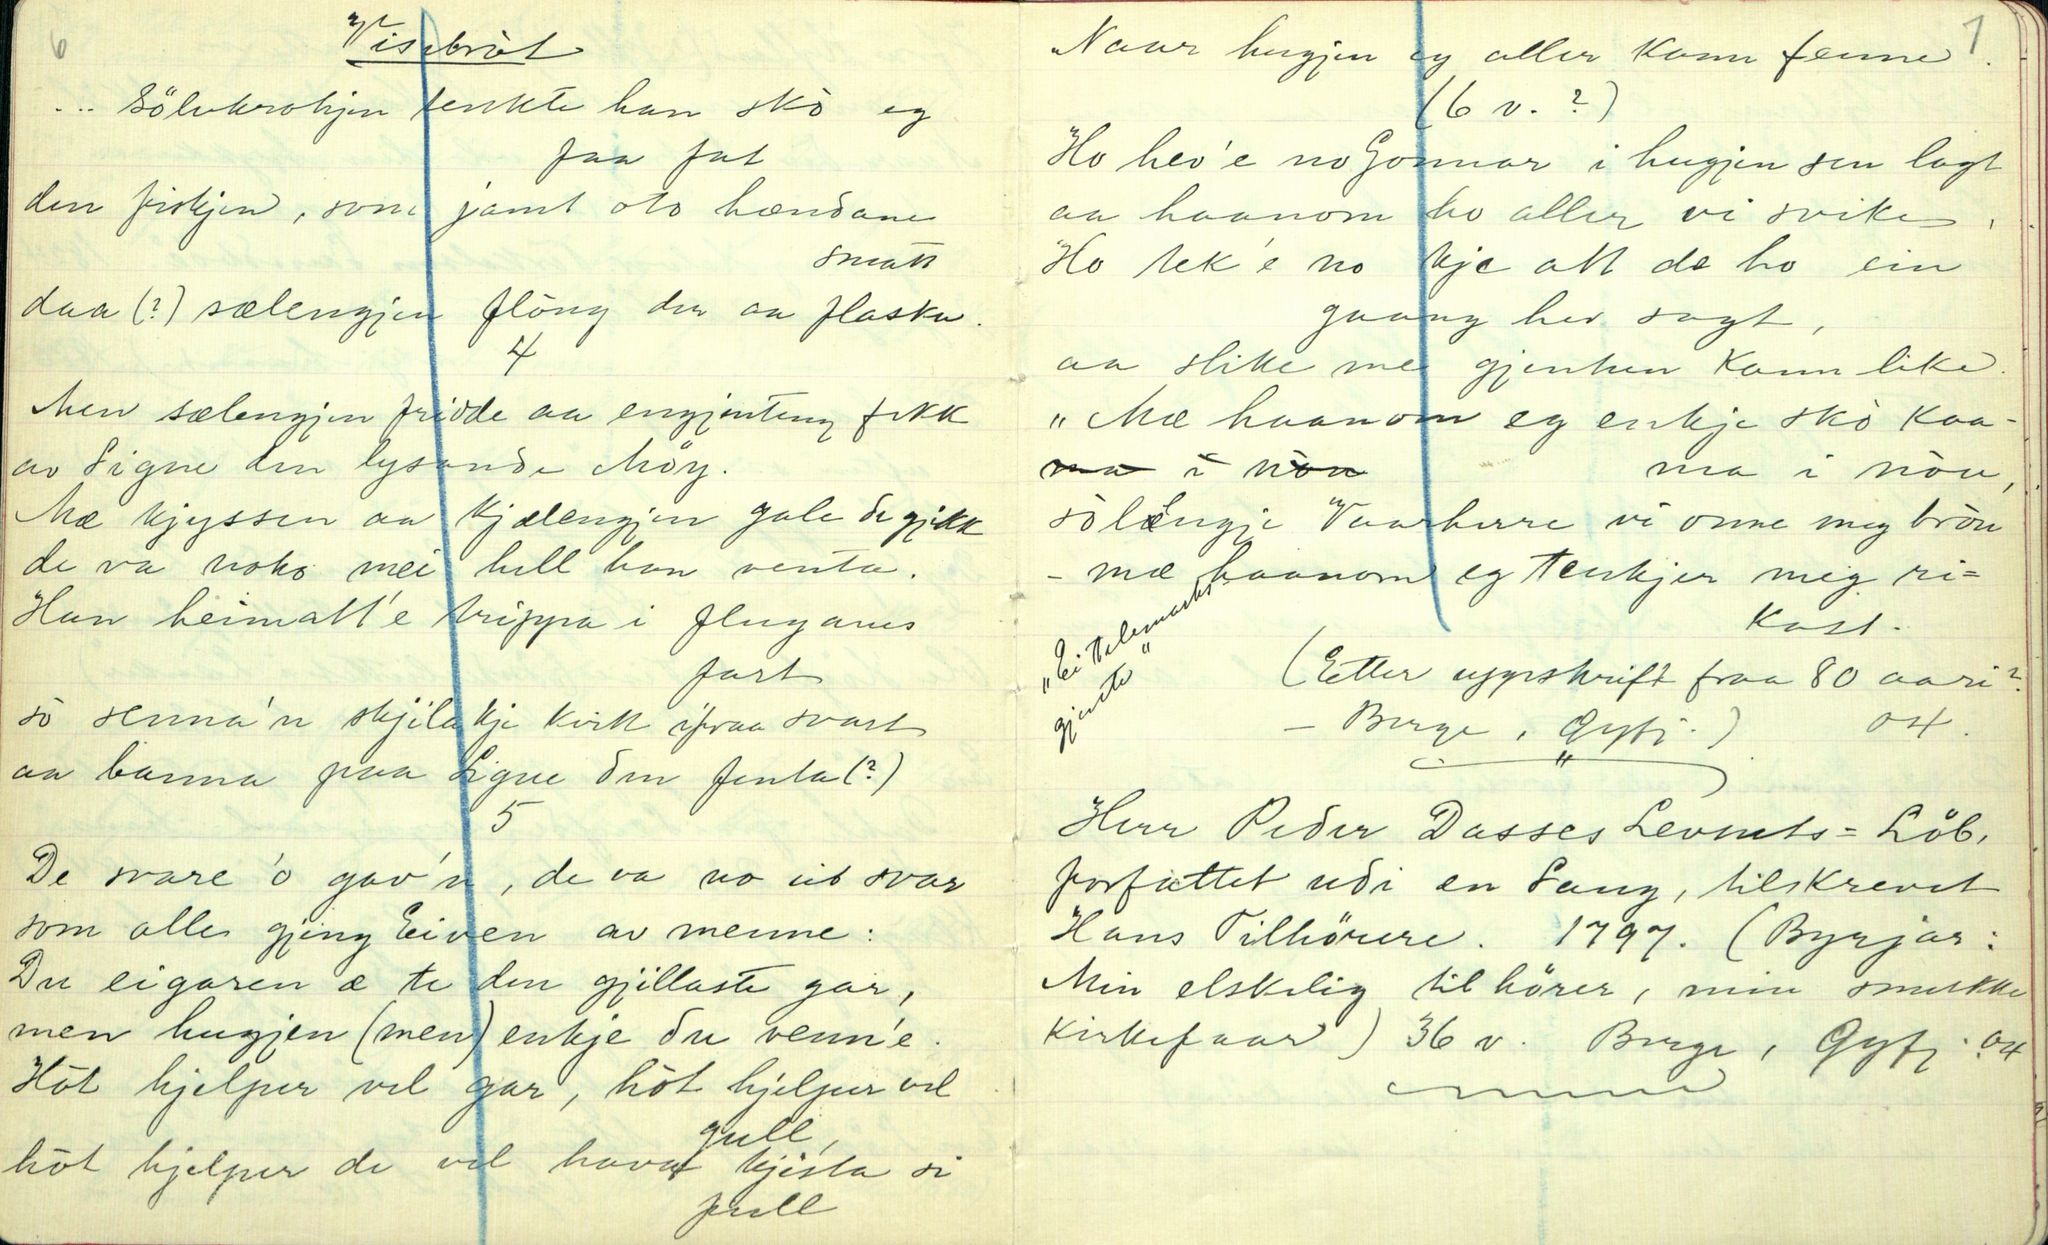 6
Visebròt
... Sölvkrokjen tenkte han skò eg
faa fat
den fiskjen, som jamt oto hændane
smatt
daa (?) sælengjen flöng der aa flaska.
4
Men sælengjen fridde aa engjenteng fekk
av Signe den lysande Möy.
Mæ kjyssen aa kjælengjen gale de gjekk
de va noko mei hell han venta.
Han heimatt'e trippa i flugarns
fart
so senna'n skjilakje kvitt ifraa svart
aa banna paa Signe den fenta (?)
5
De svare 'o gav'n, de va no eit svar
som aller gjeng Eiven av menne:
Du eigaren æ te den gjillaste gar,
men hugjen (men) enkje du venn'e.
Hòt hjelper vel gar, hòt hjelper vel
gull,
hòt hjelper de vel hava kjista si
full
7
Naar hugjen eg aller kann fenne.
(6 v. ?)
Ho hev'e no Gonnar i hugjen sen lagt
aa haanom ho aller vi svike,
Ho tek'e no kje att de ho ein
gaang hev sagt,
aa slike me gjenten kann like.
"Mæ haanom eg enkje skò kaa-
ma i nòu
ma i nòu,
sòlængje Vaarherre vi onne meg bròu
- mæ haanom eg tenkjer meg ri=
kast.
"Ei Telemarks-
gjente"
(Etter uppskrift fraa 80 aari?
- Berge, Gyfj.) 04.
"
Herr Peder Dasses Levnets = Löb,
forfattet udi en Sang, tilskrevet
Hans Tilhörere. 1797. (Byrjar:
Min elskelig tilhörer, min smukke
kirkefaar) 36 v. Berge, Gyfj. 04